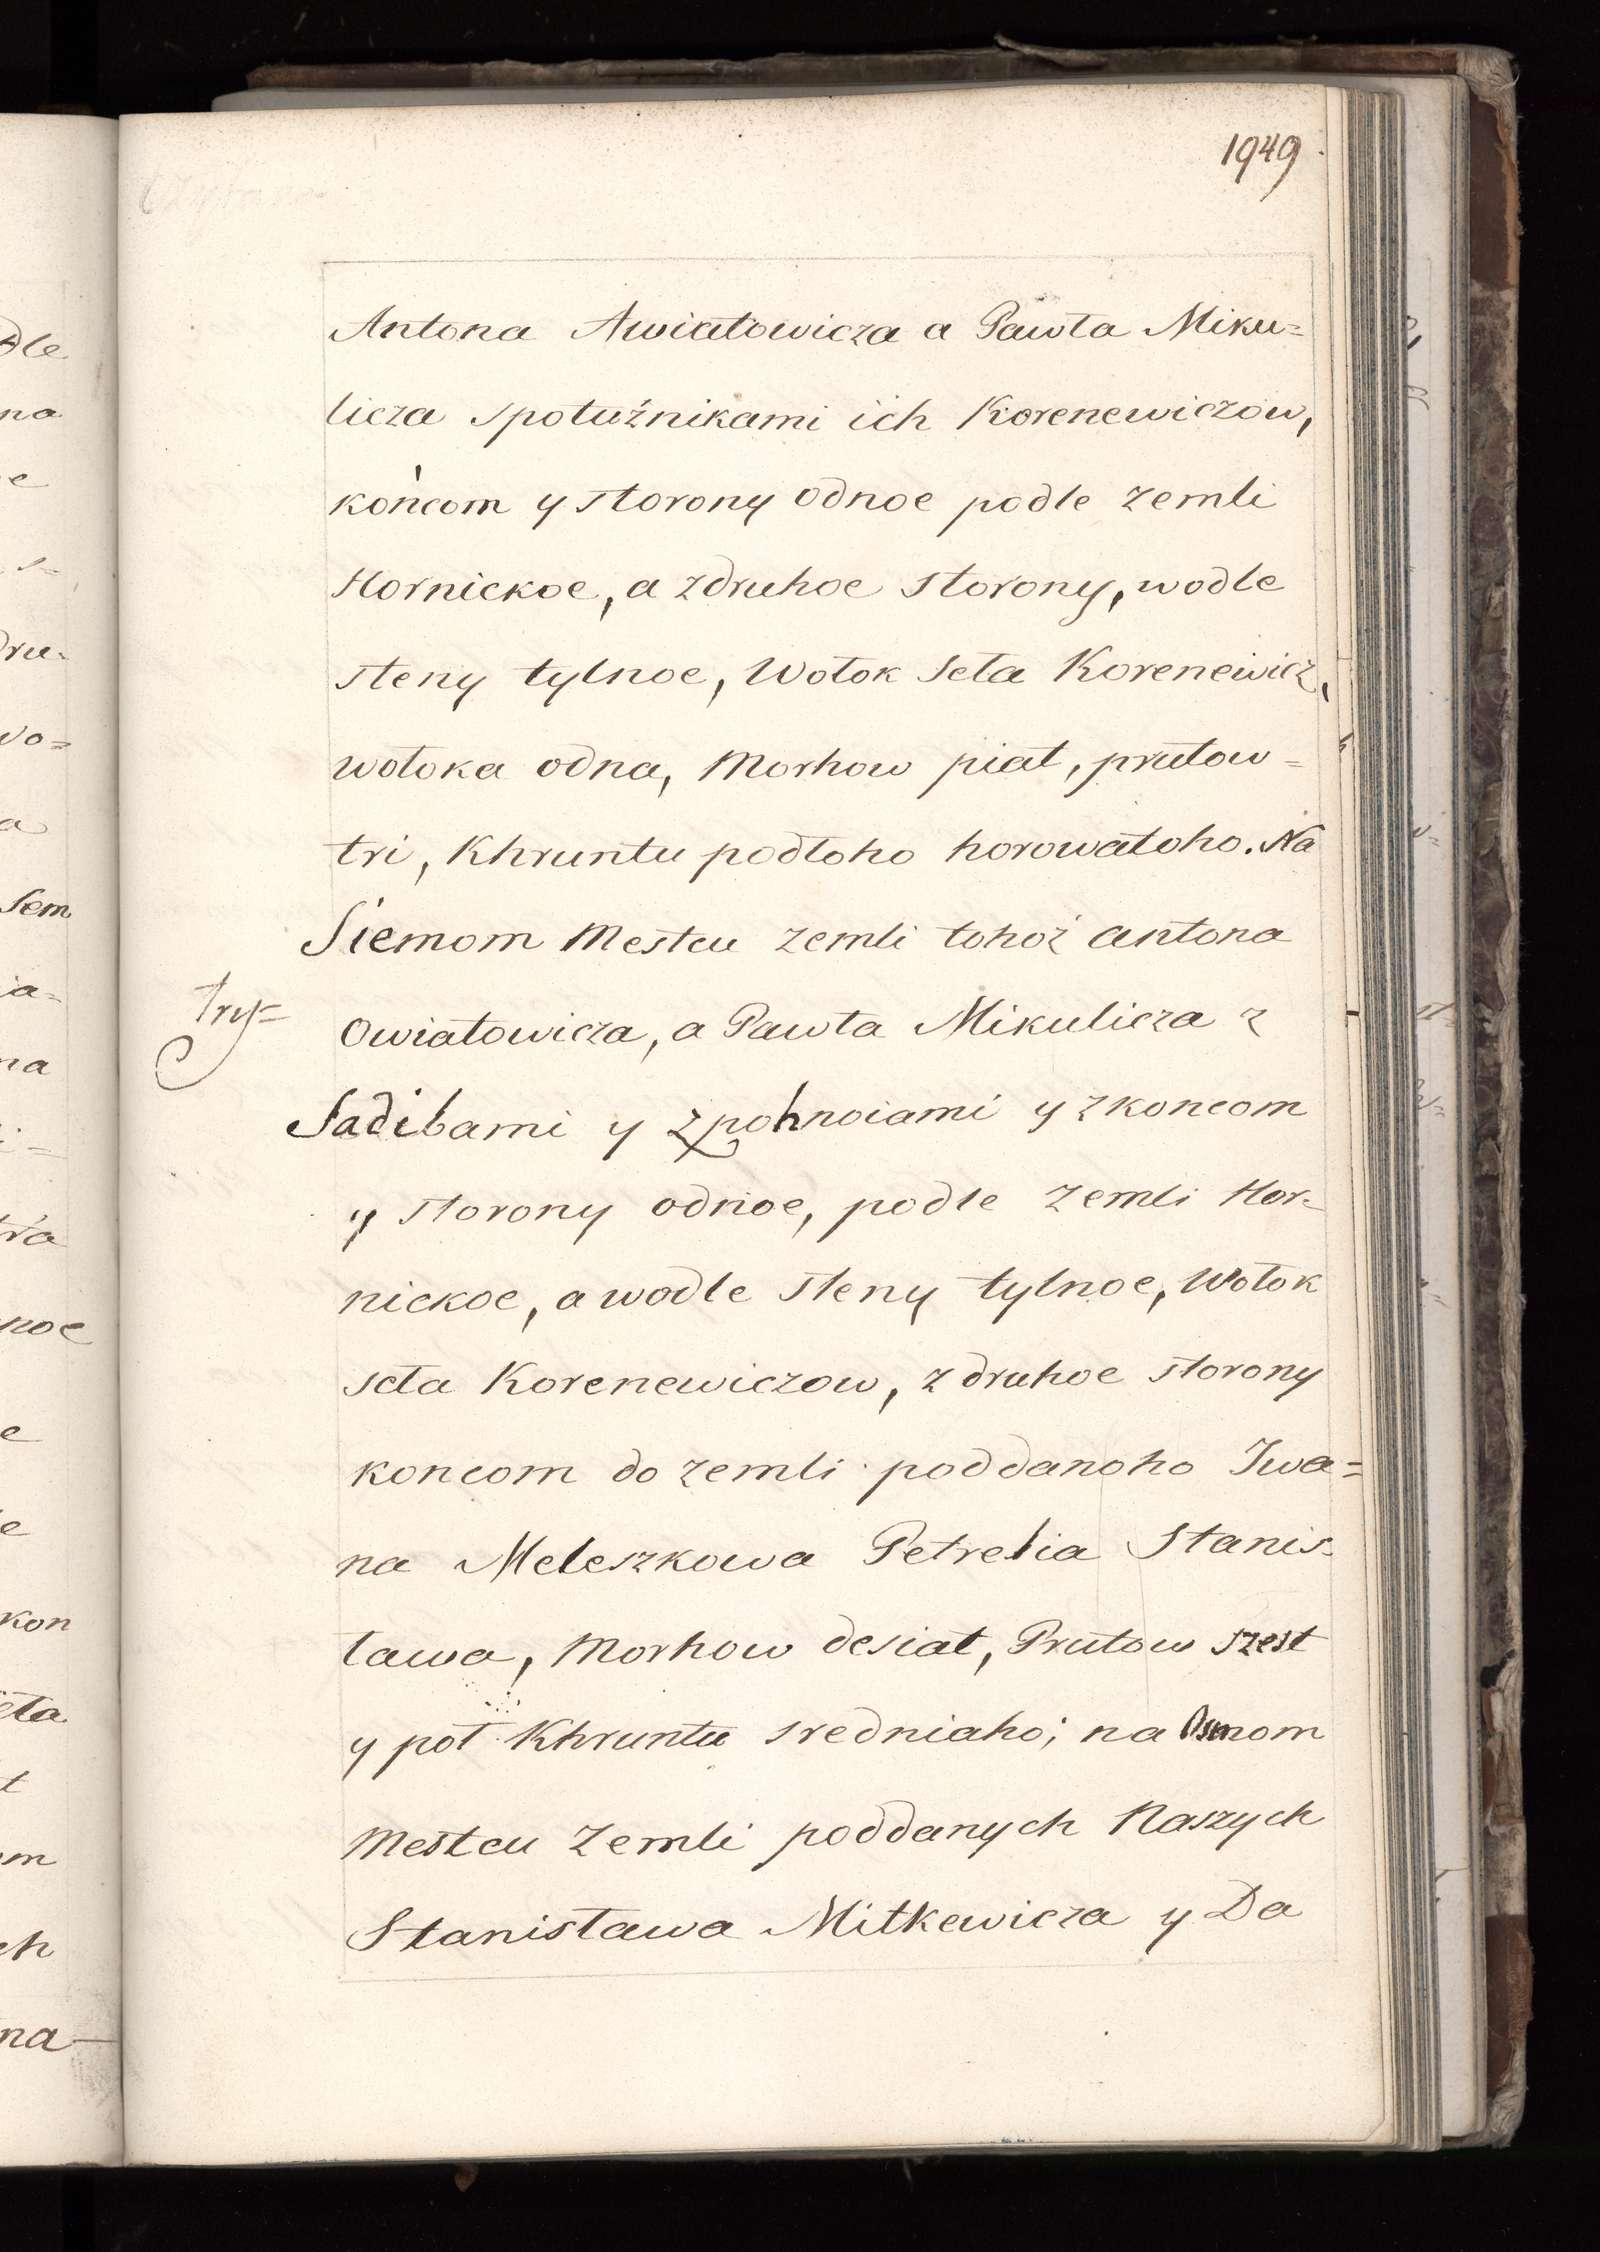 1949
Antona Awiatowicza a Pawła Miku=
licza społużnikami ich Korenewiczow,
końcom y storony odnoe podle zemli
Hornickoe, a zdruhoe storony, wodle
steny tylnoe, Wołok Seła Korenewicz,
wołoka odna, Morhow piat, prutow=
tri, Khruntu podłoho horowatoho. Na
Siemom Mestcu zemli tohoż antona
Owiatowicza, a Pawła Mikulicza z
try=
Sadibami y zpohnoiami y zkoncom
y storony odnoe, podle zemli Hor=
nickoe, a wodle steny tylnoe, Wołok
seła Korenewiczow, z druhoe storony
koncom do zemli poddanoho Iwa=
na Meleszkowa Petrelia Stanis=
ława, Morhow desiat, Prutow szest
y poł Khruntu sredniaho; na Osmom
Mestcu Zemli poddanych Naszych
Stanisława Mitkewicza y Da